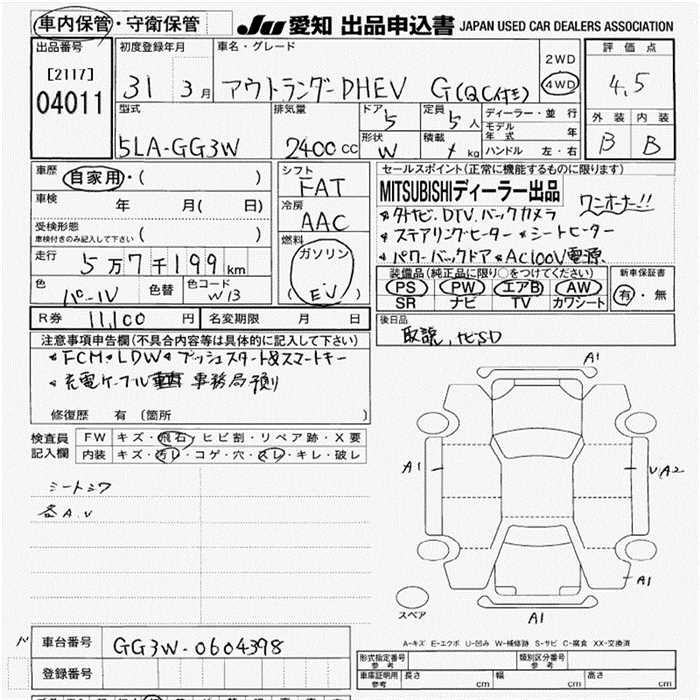 車内保管・守衛保管 JU 愛知 出品申込書 JAPAN USED CAR DEALERS ASSOCIATION
出品番号 初度登録年月 車名・グレード 2WD 評価点
[2117] 31 3月 アウトランダーPHEV G(QC付き) 4WD 4,5
04011 型式 排気量 ドア 定員 ディーラー・並行 外装 内装
5LA-GG3W 2400cc 5 5人 モデル年式 年 B B
形状 W 積載 kg ハンドル 左・右
車歴 自家用・( ) シフト FAT セールスポイント(正常に機能するものに限ります)
車検 年 月( 日) 冷房 AAC MITSUBISHIディーラー出品 ワンオーナー!!
受検形態 車検付きのみ記入して下さい ( ) 燃料 ガソリン (EV) *外ナビ、DTV、バックカメラ
*ステアリングヒーター *シートヒーター
走行 5万7千199km *パワーバックドア *AC100V電源
色 パール 色替 色コード W13 装備品(純正品に限り○をつけてください) 新車保証書
PS PW エアB AW 有・無
SR ナビ TV カワシート
R券 11,100円 名変期限 月 日 後日品
取説,ナビSD
注意事項申告欄(不具合内容等は具体的に記入して下さい)
*FCM*LDW*プッシュスタート&スマートキー
*充電ケーブル 事務局預り
修復歴 有 〔箇所 〕
検査員記入欄 FW キズ・飛石・ヒビ割・リペア跡・X要
内装 キズ・汚レ・コゲ・穴・スレ・キレ・破レ
A1
A1 U A2
シートシワ
各A.U
A1
スペア A1
A-キズ E-エクボ U-凹み W-補修跡 S-サビ C-腐食 XX-交換済
車台番号 GG3W-0604398
登録番号
形式指定番号 参考 類別区分番号 参考
車庫証明用 参考 長さ cm 幅 cm 高さ cm